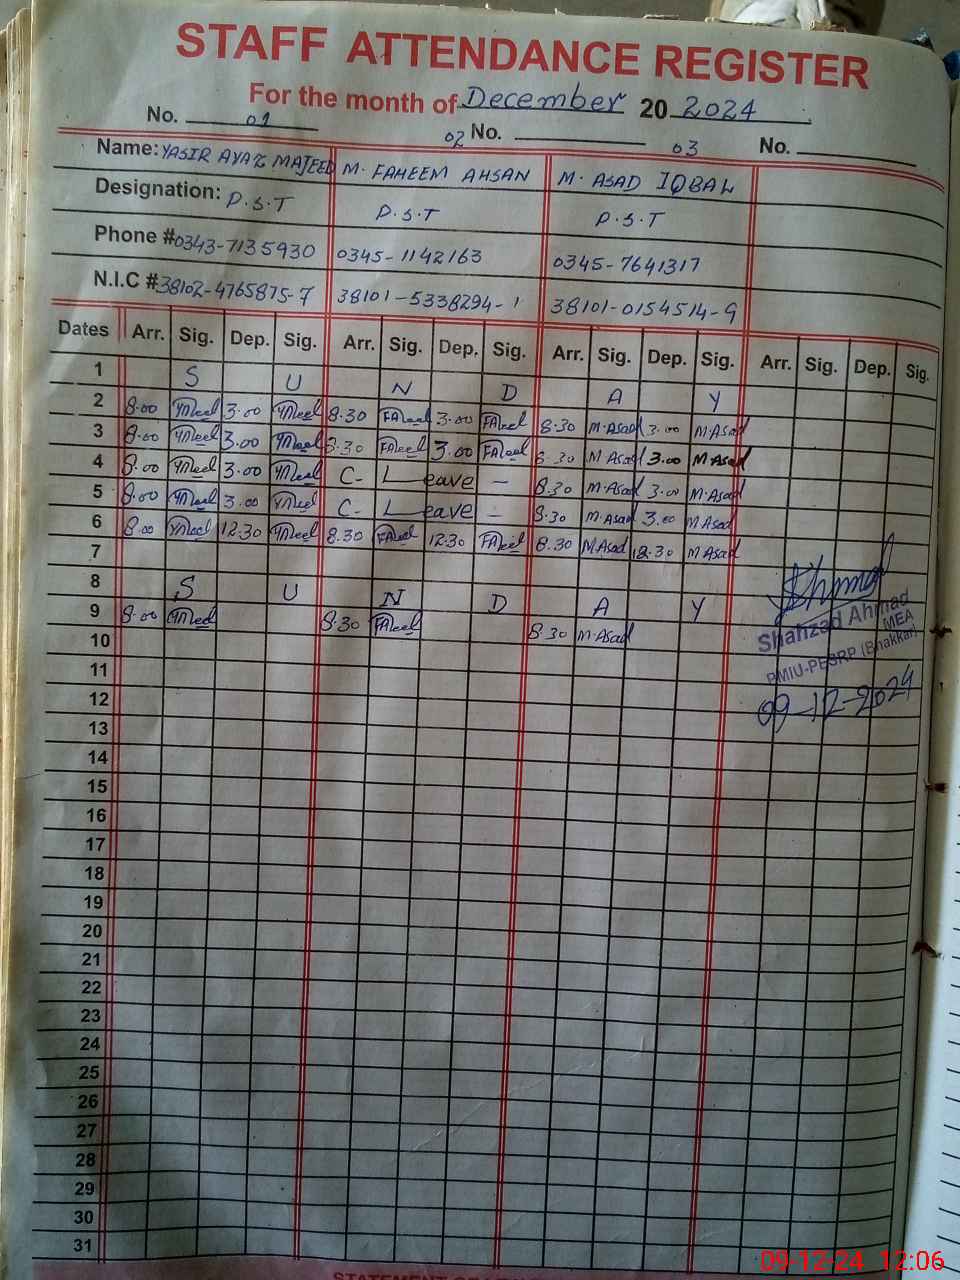 STAFF ATTENDANCE REGISTER
For the month of December 20 2024
No. 01 02 No. 03 No.
Name: YASIR AYAZ MAJEED M. FAHEEM AHSAN M. ASAD IQBAL
Designation: P.S.T P.S.T P.S.T
Phone # 0343-7135930 0345-1142163 0345-7641317
N.I.C # 38102-4765875-7 38101-5338294-1 38101-0154514-9
Dates Arr. Sig. Dep. Sig. Arr. Sig. Dep. Sig. Arr. Sig. Dep. Sig. Arr. Sig. Dep. Sig.
1 S U N D A Y
2 8.00 3.00 8.30 3.00 8.30 M.Asad 3.00 M.Asad
3 8.00 3.00 8.30 3.00 8.30 M.Asad 3.00 M.Asad
4 8.00 3.00 C- Leave - 8.30 M.Asad 3.00 M.Asad
5 8.00 3.00 C- Leave - 8.30 M.Asad 3.00 M.Asad
6 8.00 12.30 8.30 12.30 8.30 M.Asad 12.30 M.Asad
7
8 S U N D A Y
9 8.00 8.30 8.30 M.Asad
10
11
12
13
14
15
16
17
18
19
20
21
22
23
24
25
26
27
28
29
30
31
Shahzad Ahmad
MEA
PMIU-PESRP (Bhakkar)
09-12-2024
09-12-24 12:06